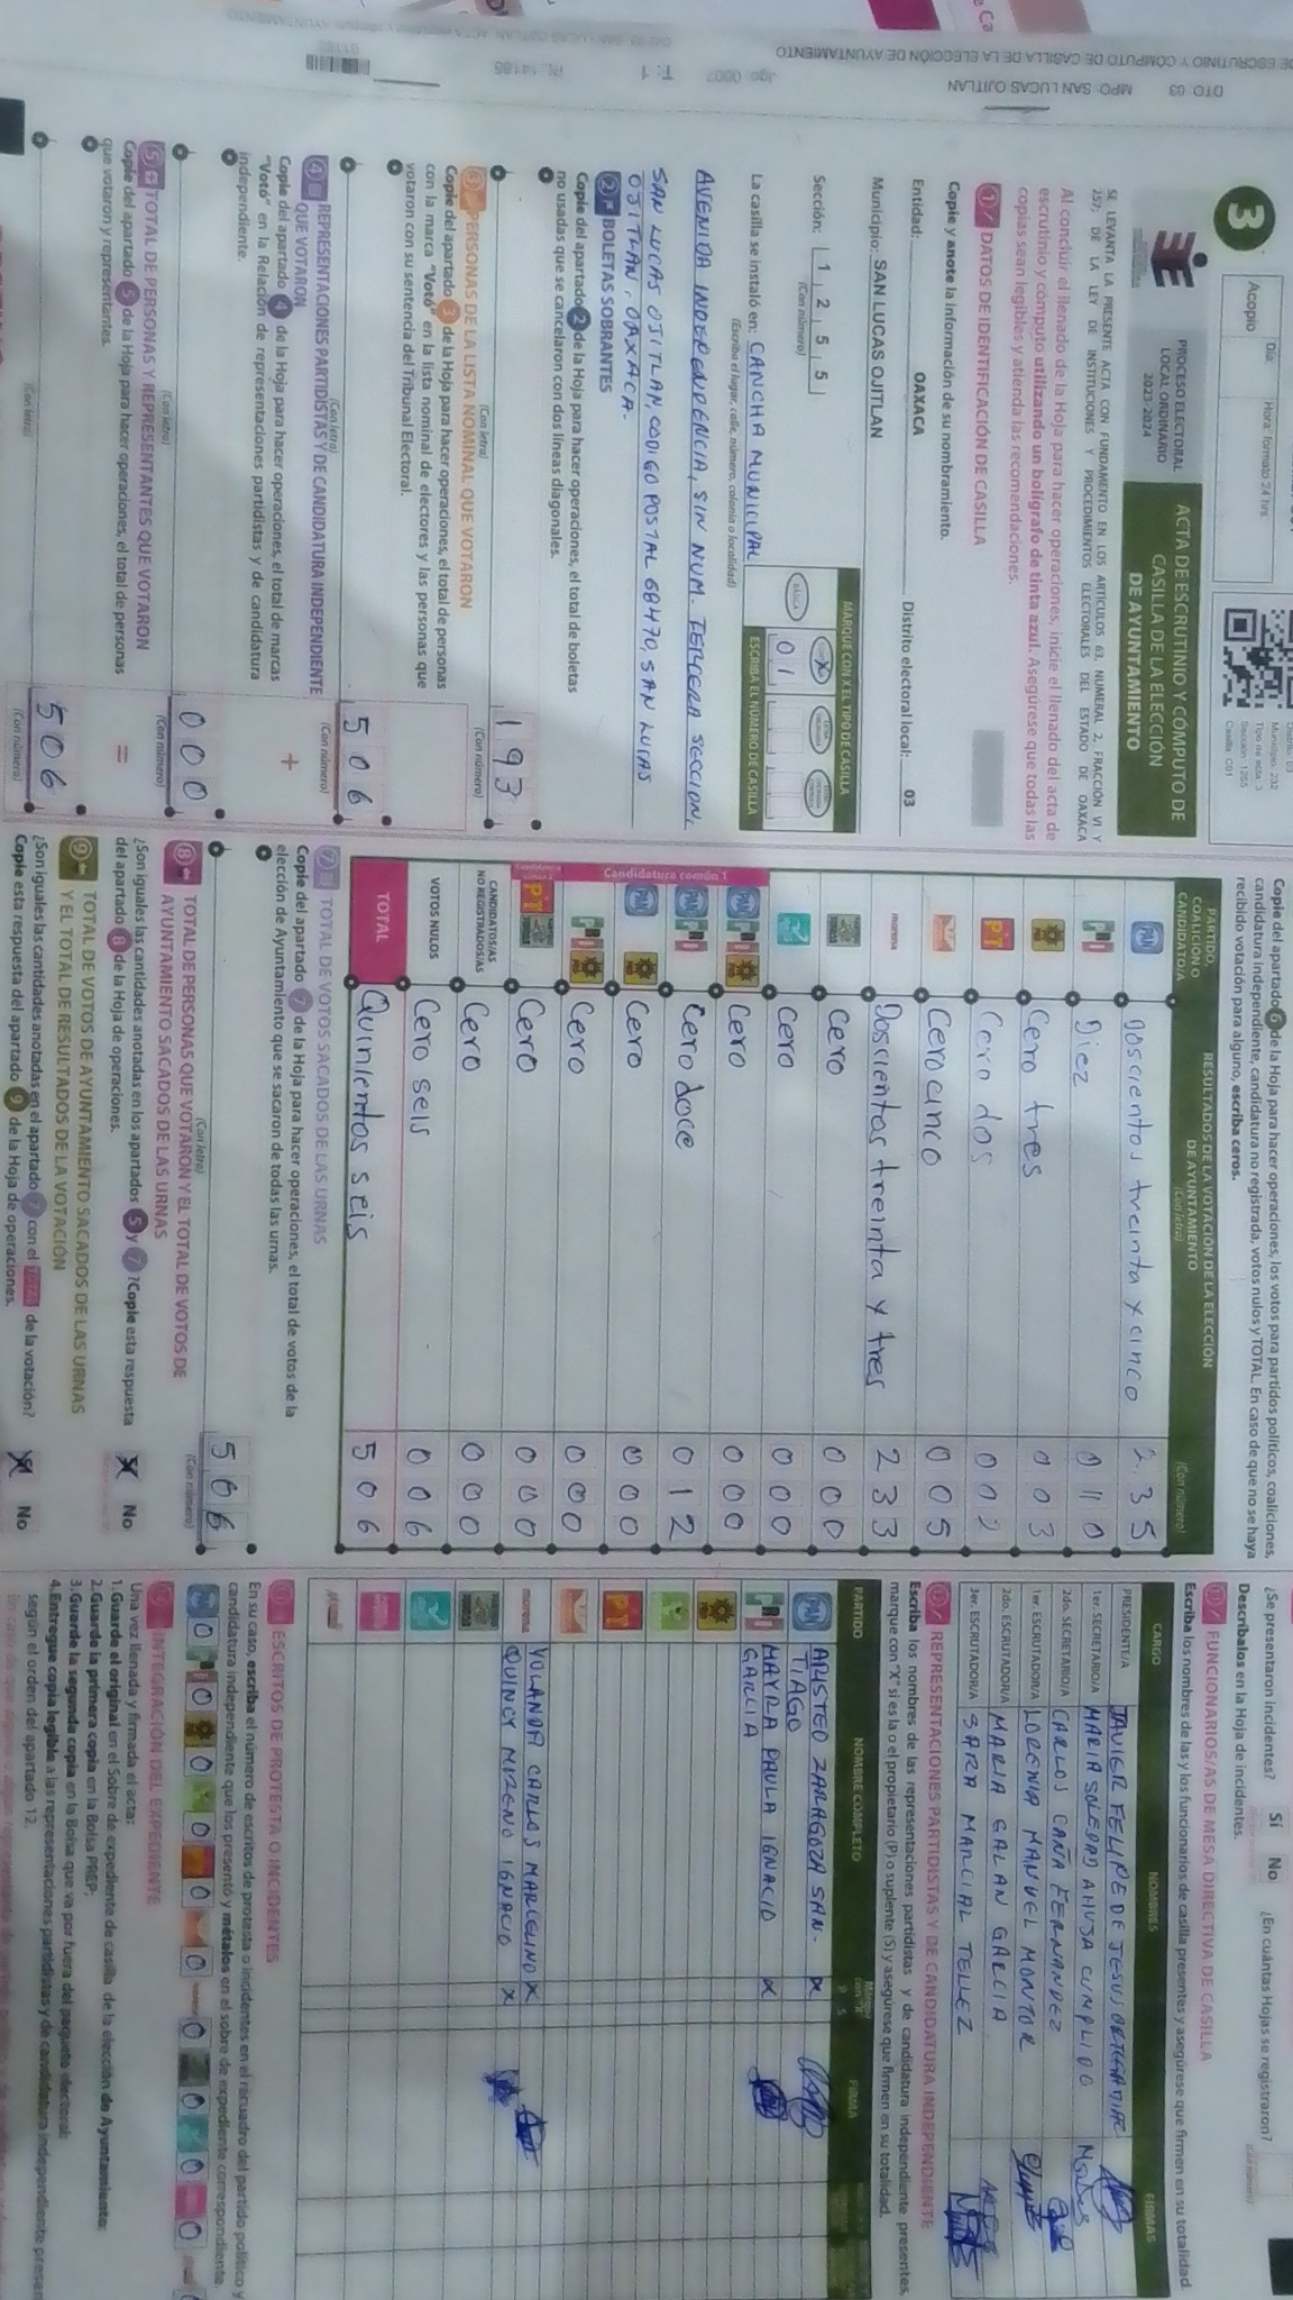 DTO 03 MPO SAN LUCAS OJITLAN
DE ESCRUTINIO Y CÓMPUTO DE CASILLA DE LA ELECCIÓN DE AYUNTAMIENTO
3
Acopio
Día:
Hora: formato 24 hrs
Municipio: 232
Tipo de acta: 3
Sección: 1255
Casilla: C01
PROCESO ELECTORAL
LOCAL ORDINARIO
2023-2024
ACTA DE ESCRUTINIO Y CÓMPUTO DE
CASILLA DE LA ELECCIÓN
DE AYUNTAMIENTO
SE LEVANTA LA PRESENTE ACTA CON FUNDAMENTO EN LOS ARTÍCULOS 63, NUMERAL 2, FRACCIÓN VI Y
257; DE LA LEY DE INSTITUCIONES Y PROCEDIMIENTOS ELECTORALES DEL ESTADO DE OAXACA
Al concluir el llenado de la Hoja para hacer operaciones, inicie el llenado del acta de
escrutinio y cómputo utilizando un bolígrafo de tinta azul. Asegúrese que todas las
copias sean legibles y atienda las recomendaciones.
1 DATOS DE IDENTIFICACIÓN DE CASILLA
Copie y anote la información de su nombramiento.
Entidad: OAXACA Distrito electoral local: 03
Municipio: SAN LUCAS OJITLAN
Sección: 1 2 5 5
(Con número)
MARQUE CON X EL TIPO DE CASILLA
BÁSICA X
0 1
ESCRIBA EL NÚMERO DE CASILLA
La casilla se instaló en: CANCHA MUNICIPAL
(Escriba el lugar, calle, número, colonia o localidad)
AVENIDA INDEPENDENCIA, SIN NUM. TERCERA SECCION,
SAN LUCAS OJITLAN, CODIGO POSTAL 68470, SAN LUCAS
OJITLAN, OAXACA.
2 BOLETAS SOBRANTES
Copie del apartado 2 de la Hoja para hacer operaciones, el total de boletas
no usadas que se cancelaron con dos líneas diagonales.
193
(Con letra) (Con número)
3 PERSONAS DE LA LISTA NOMINAL QUE VOTARON
Copie del apartado 3 de la Hoja para hacer operaciones, el total de personas
con la marca "Votó" en la lista nominal de electores y las personas que
votaron con su sentencia del Tribunal Electoral.
506
(Con letra) (Con número)
4 REPRESENTACIONES PARTIDISTAS Y DE CANDIDATURA INDEPENDIENTE
QUE VOTARON +
Copie del apartado 4 de la Hoja para hacer operaciones, el total de marcas
"Votó" en la Relación de representaciones partidistas y de candidatura
independiente.
000
(Con letra) (Con número)
5 TOTAL DE PERSONAS Y REPRESENTANTES QUE VOTARON
Copie del apartado 5 de la Hoja para hacer operaciones, el total de personas =
que votaron y representantes.
506
(Con letra) (Con número)
Copie del apartado 6 de la Hoja para hacer operaciones, los votos para partidos políticos, coaliciones,
candidatura independiente, candidatura no registrada, votos nulos y TOTAL. En caso de que no se haya
recibido votación para alguno, escriba ceros.
PARTIDO,
COALICIÓN O
CANDIDATO/A
RESULTADOS DE LA VOTACIÓN DE LA ELECCIÓN
DE AYUNTAMIENTO
(Con letra) (Con número)
PAN Doscientos treinta y cinco 235
PRI Diez 010
PRD Cero tres 003
PT Cero dos 002
Cero cinco 005
morena Doscientos treinta y tres 233
Cero 000
Cero 000
Candidatura común 1
PAN PRI PRD Cero 000
PAN PRI Cero doce 012
PAN PRD Cero 000
PRI PRD Cero 000
PT Cero 000
CANDIDATOS/AS
NO REGISTRADOS/AS Cero 000
VOTOS NULOS Cero seis 006
TOTAL Quinientos seis 506
7 TOTAL DE VOTOS SACADOS DE LAS URNAS
Copie del apartado 7 de la Hoja para hacer operaciones, el total de votos de la
elección de Ayuntamiento que se sacaron de todas las urnas.
506
(Con letra) (Con número)
8 TOTAL DE PERSONAS QUE VOTARON Y EL TOTAL DE VOTOS DE
AYUNTAMIENTO SACADOS DE LAS URNAS
¿Son iguales las cantidades anotadas en los apartados 5 y 7? Copie esta respuesta
del apartado 8 de la Hoja de operaciones. X No
9 TOTAL DE VOTOS DE AYUNTAMIENTO SACADOS DE LAS URNAS
Y EL TOTAL DE RESULTADOS DE LA VOTACIÓN
¿Son iguales las cantidades anotadas en el apartado 7 con el TOTAL de la votación?
Copie esta respuesta del apartado 9 de la Hoja de operaciones. X No
¿Se presentaron incidentes? Sí No ¿En cuántas Hojas se registraron?
Descríbalos en la Hoja de incidentes.
FUNCIONARIOS/AS DE MESA DIRECTIVA DE CASILLA
Escriba los nombres de las y los funcionarios de casilla presentes y asegúrese que firmen en su totalidad.
CARGO NOMBRES FIRMAS
PRESIDENTE/A JAVIER FELIPE DE JESUS
1er. SECRETARIO/A MARIA SOLEDAD AHUJA CUMPLIDO
2do. SECRETARIO/A CARLOS CAÑA FERNANDEZ
1er. ESCRUTADOR/A LORENIA MANUEL MONTOR
2do. ESCRUTADOR/A MARIA GALAN GARCIA
3er. ESCRUTADOR/A SARA MARCIAL TELLEZ
REPRESENTACIONES PARTIDISTAS Y DE CANDIDATURA INDEPENDIENTE
Escriba los nombres de las representaciones partidistas y de candidatura independiente presentes,
marque con "X" si es la o el propietario (P) o suplente (S) y asegúrese que firmen en su totalidad.
PARTIDO NOMBRE COMPLETO P S FIRMA
PAN ARISTEO ZARAGOZA SAN- X
TIAGO
PRI MAYRA PAULA IGNACIO X
GARCIA
PRD
PT
morena YOLANDA CARLOS MARCELINO X
QUINCY MIZENO IGNACIO X
ESCRITOS DE PROTESTA O INCIDENTES
En su caso, escriba el número de escritos de protesta o incidentes en el recuadro del partido político y
candidatura independiente que los presentó y métalos en el sobre de expediente correspondiente.
0 0 0 0 0 0 0 0 0 0
INTEGRACIÓN DEL EXPEDIENTE
Una vez llenada y firmada el acta:
1. Guarde el original en el Sobre de expediente de casilla de la elección de Ayuntamiento;
2. Guarde la primera copia en la Bolsa PREP;
3. Guarde la segunda copia en la Bolsa que va por fuera del paquete electoral;
4. Entregue copia legible a las representaciones partidistas y de candidatura independiente
según el orden del apartado 12.